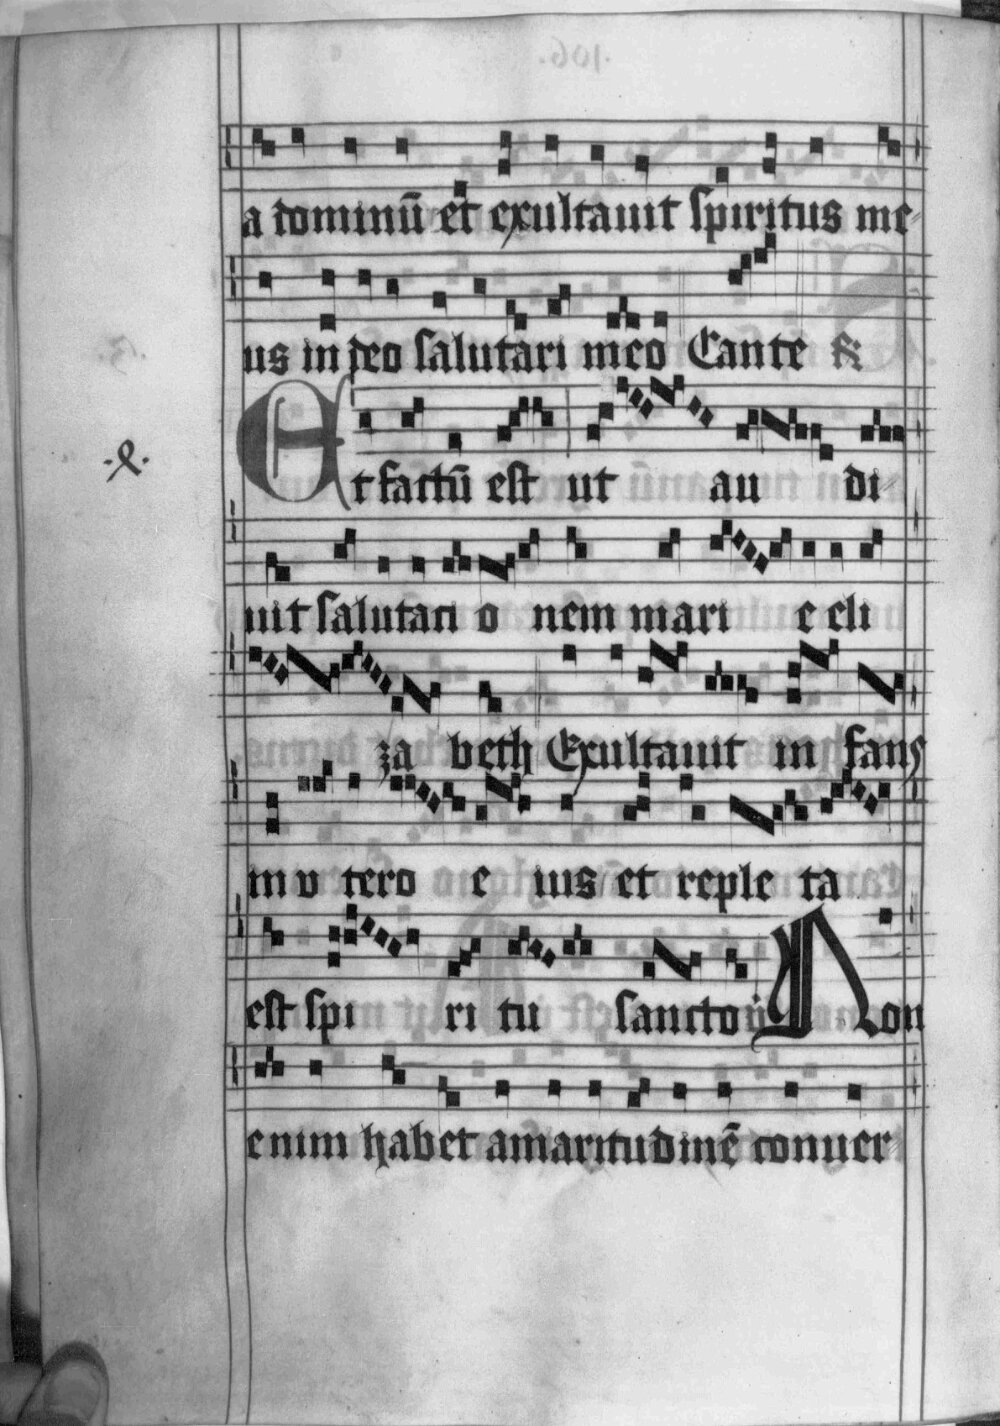 a dominū et exultauit spiritus me-
us in deo salutari meo Cante
Et factū est ut au di
uit salutati o nem mari e eli
za beth Exultauit in fans
in v tero e ius et reple ta
est spi ri tu sancto Non
enim habet amaritudinē conuer